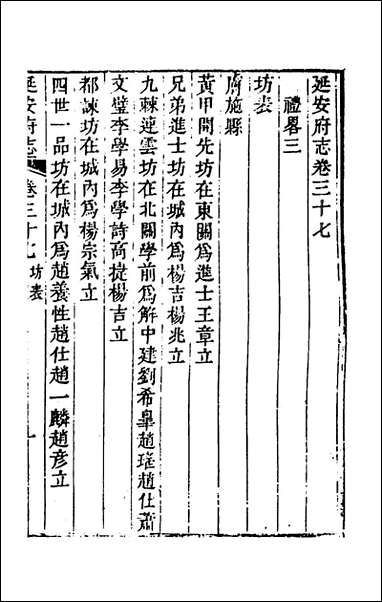 延安府志卷三十七
禮畧三
坊表
膚施縣
黃甲開先坊在東關爲進士王章立
兄弟進士坊在城內爲楊吉楊兆立
九棘連雲坊在北關學前爲解中建劉希皐趙瑤趙仕蕭
文璧李學易李學詩高捷楊吉立
都諫坊在城內爲楊宗氣立
四世一品坊在城內爲趙養性趙仕趙一麟趙彥立
延安府志
卷三十七
坊表
一